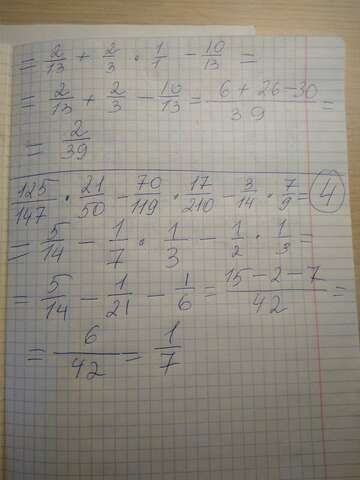 = 2/13 + 2/3 · 1/1 - 10/13 =
= 2/13 + 2/3 - 10/13 = (6 + 26 - 30)/39 =
= 2/39
125/147 · 21/50 - 70/119 · 17/210 - 3/14 · 7/9 = 4
= 5/14 - 1/7 · 1/3 - 1/2 · 1/3 =
= 5/14 - 1/21 - 1/6 = (15 - 2 - 7)/42 =
= 6/42 = 1/7